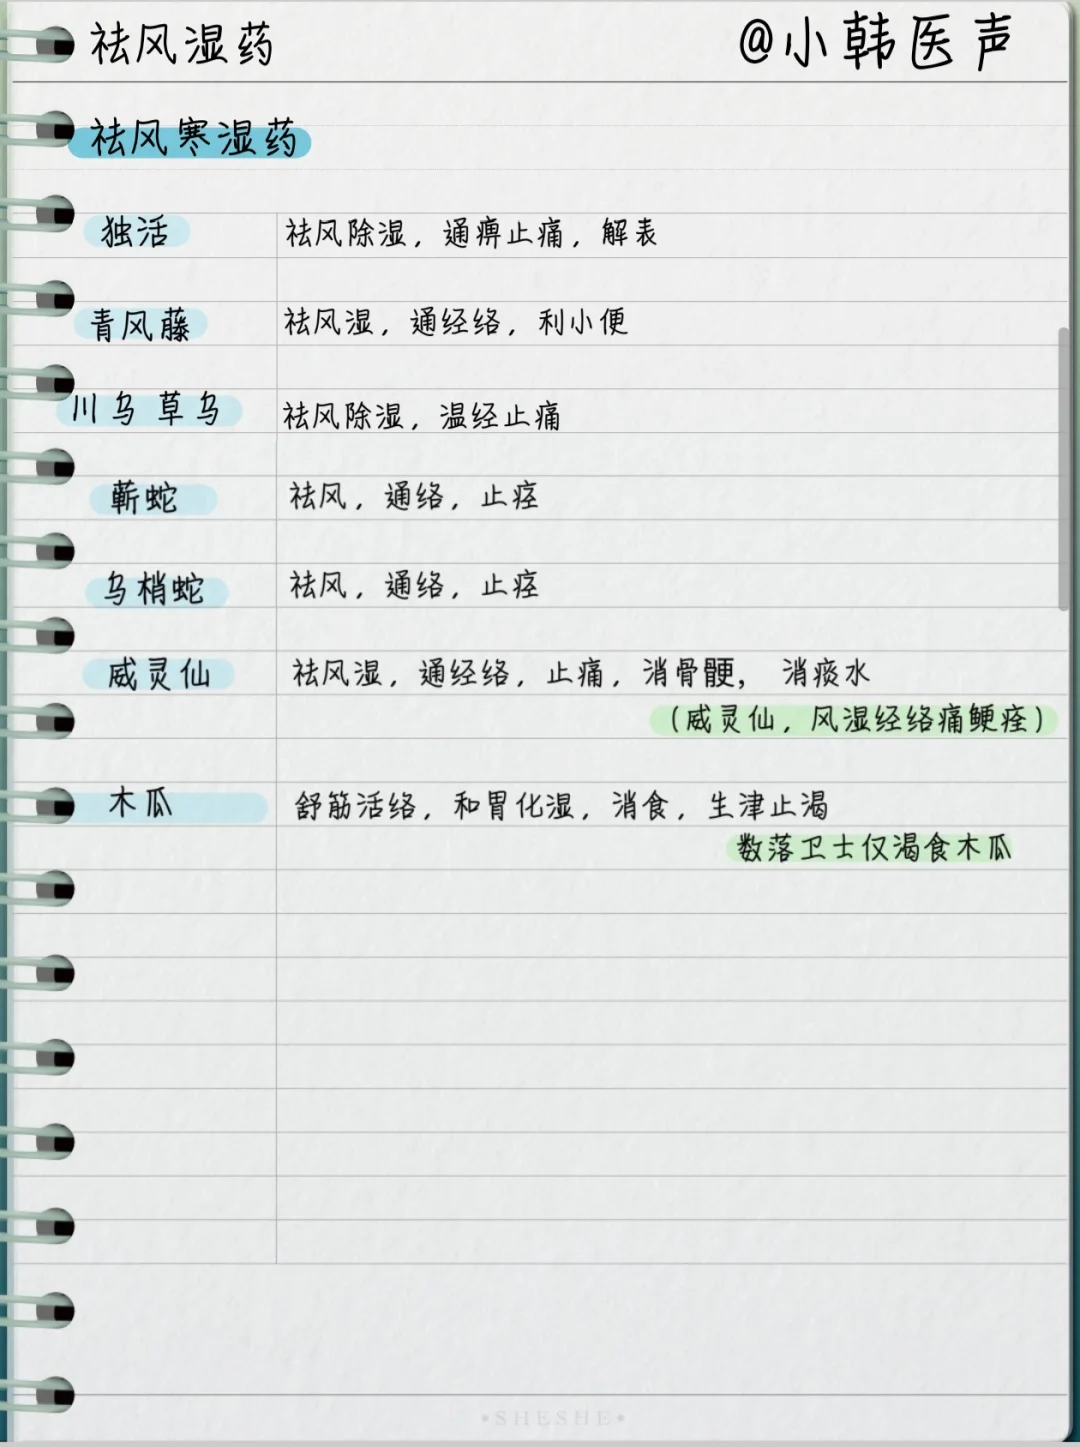 祛风湿药
@小韩医声
祛风寒湿药
独活 祛风除湿，通痹止痛，解表
青风藤 祛风湿，通经络，利小便
川乌 草乌 祛风除湿，温经止痛
蕲蛇 祛风，通络，止痉
乌梢蛇 祛风，通络，止痉
威灵仙 祛风湿，通经络，止痛，消骨骾， 消痰水
（威灵仙，风湿经络痛鲠痊）
木瓜 舒筋活络，和胃化湿，消食，生津止渴
数落卫士仅渴食木瓜
•SHESHE•